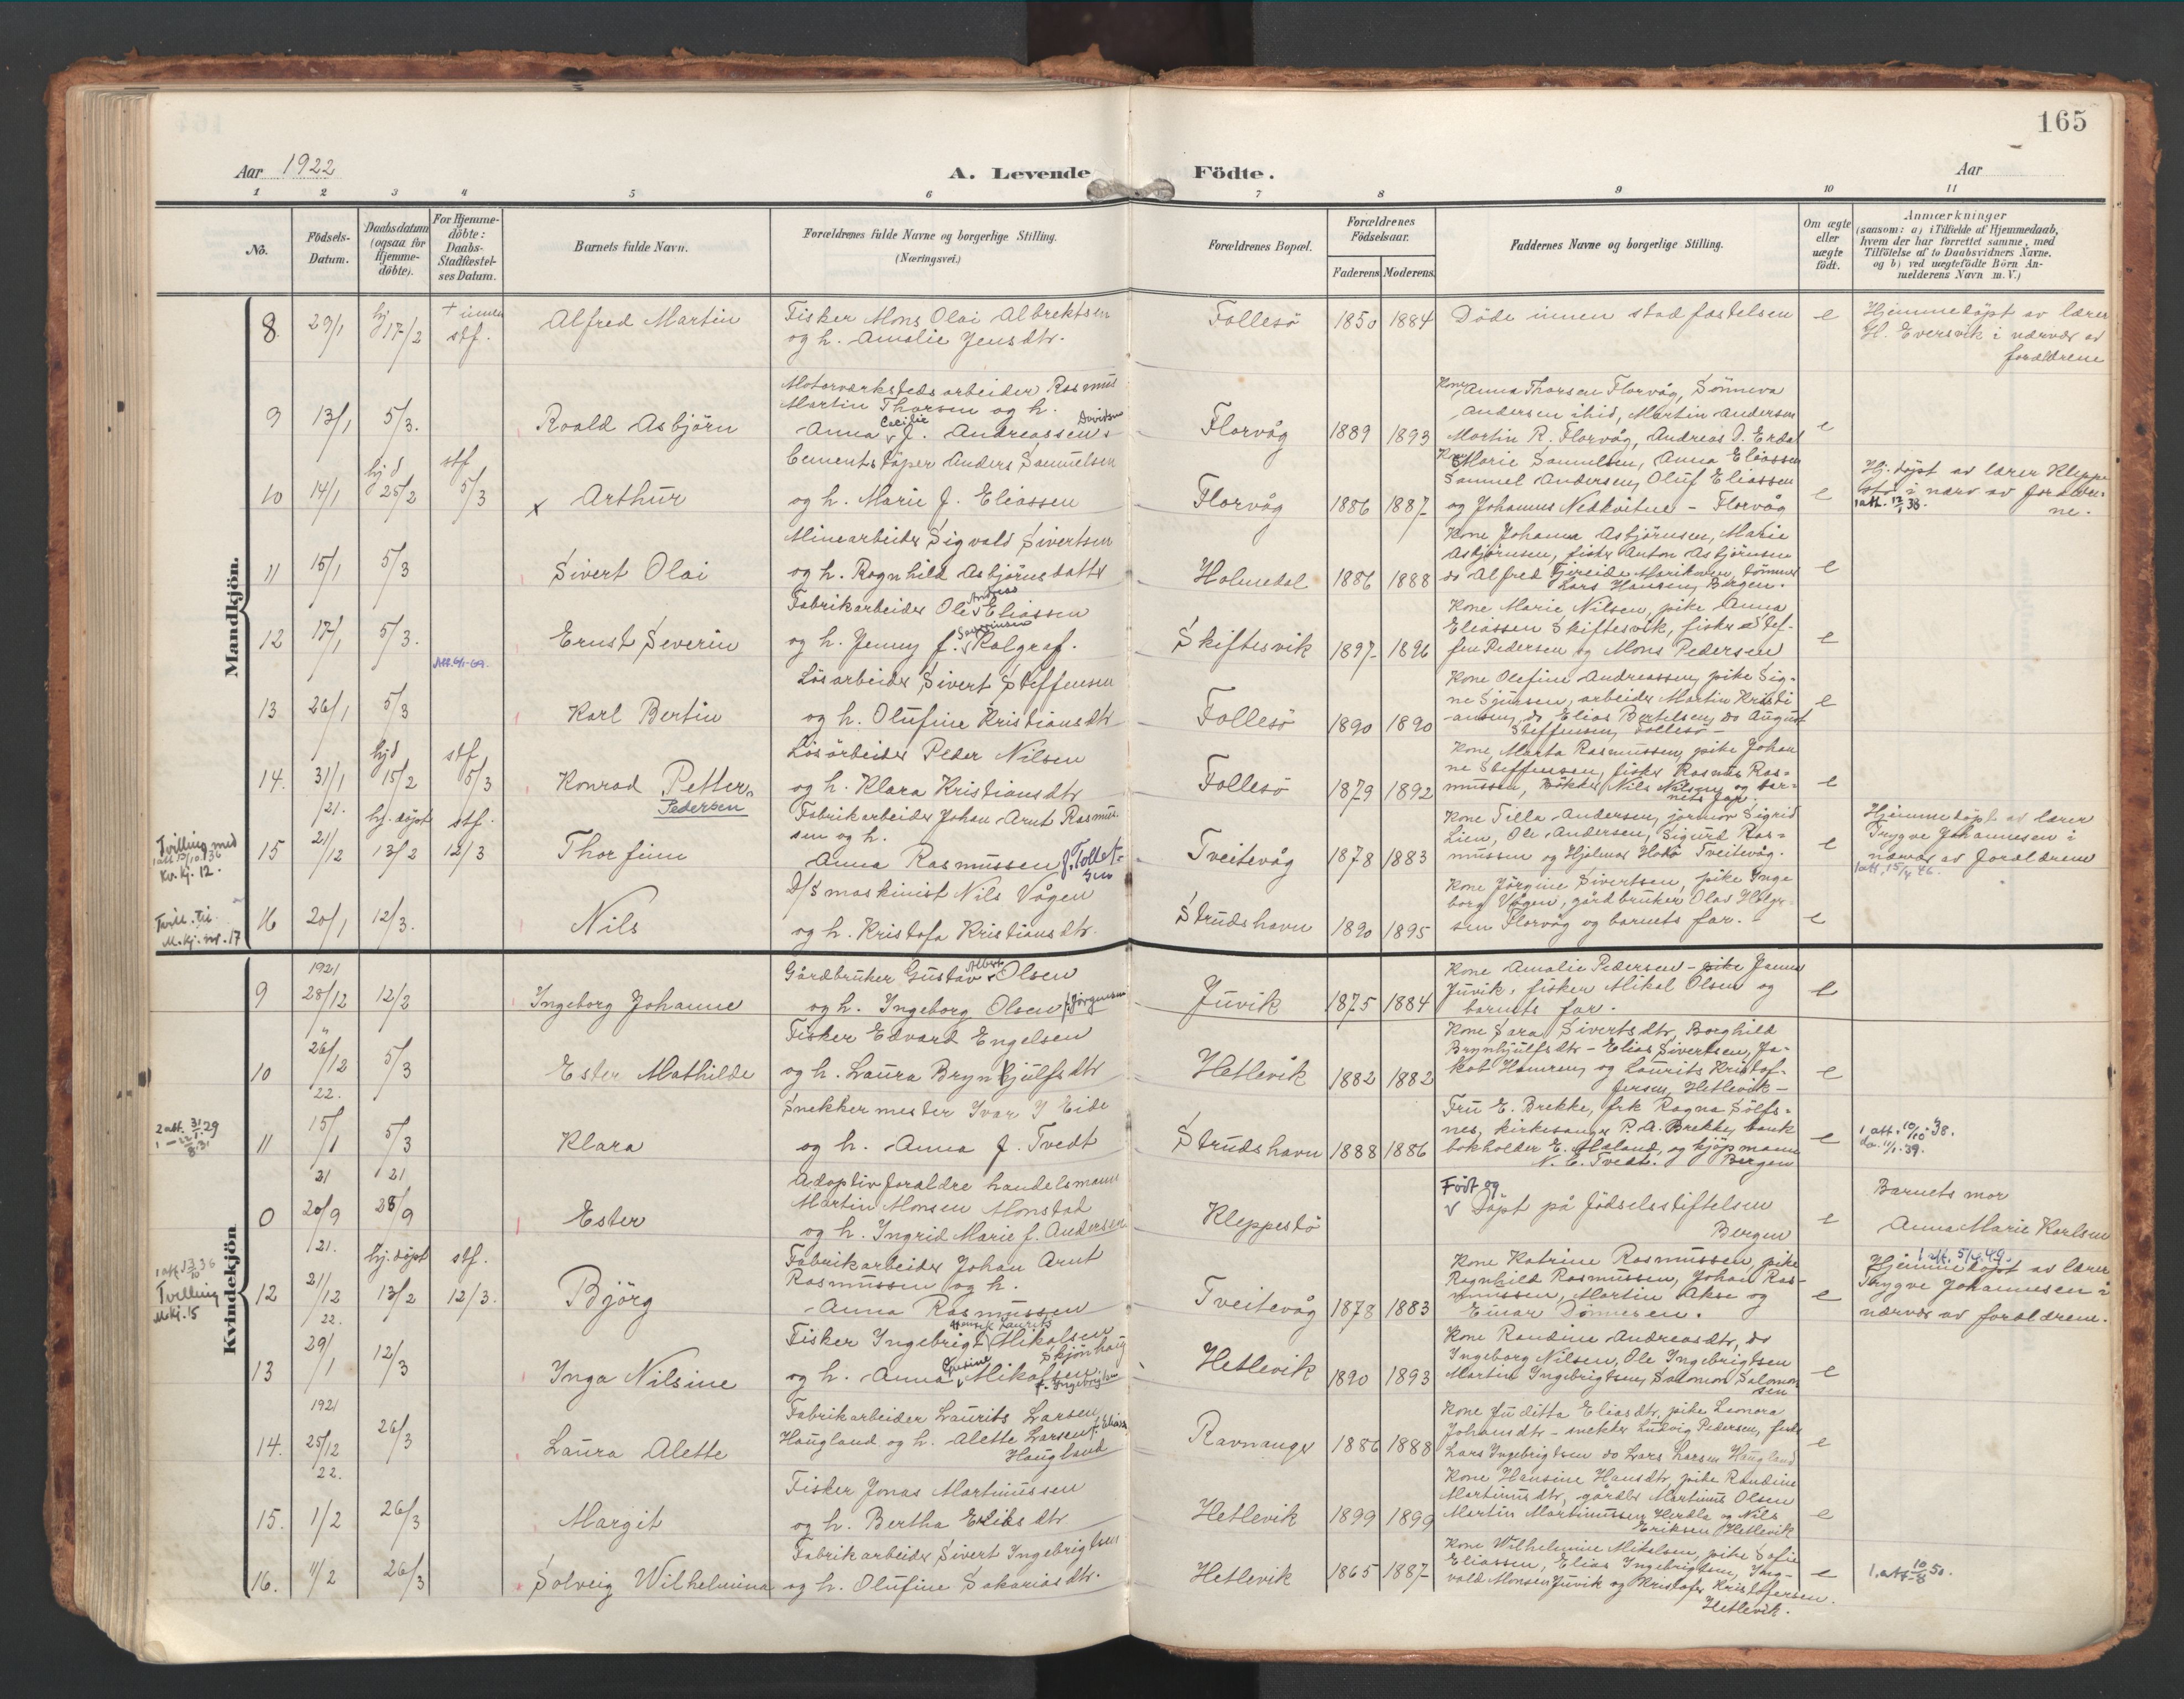 165
Aar 1922
A. Levende Födte.
Aar
1 2 3 4 5 6 7 8 9 10 11
No.
Födsels-Datum.
Daabsdatum (ogsaa for Hjemme-döbte).
For Hjemme-döbte: Daabs-Stadfæstel-ses Datum.
Barnets fulde Navn.
Forældrenes fulde Navne og borgerlige Stilling.
(Næringsvei.)
Forældrenes Bopæl.
Forældrenes Födselsaar.
Faderens Moderens
Faddernes Navne og borgerlige Stilling.
Om ægte eller uægte födt.
Anmærkninger
(saasom: a) i Tilfælde af Hjemmedaab, hvem der har forrettet samme, med Tilföielse af to Daabsvidners Navne, og b) ved uægtefödte Börn An-melderens Navn m. V.)
Mandkjön.
8 29/1 hj 17/2 + innen stf. Alfred Martin
Fisker Mons Olai Albrektsen
og h. Amalie Jensdtr.
Follesö 1850 1884 Döde innen stadfæstelsen e
Hjemmedöpt av lærer
H. Eversvik i nærvær av
forældrene
9 13/1 5/3. Roald Asbjörn
Motorværkstedsarbeider Rasmus
Martin Thorsen og h.
Anna Cecilie f. Andreassen Davidsen
Florvåg 1889 1893
Kone Anna Thorsen Florvåg, Sönneva
Andersen ibid, Martin Andersen
Martin R. Florvåg, Andreas D. Erdal
e
10 14/1 hjd 25/2 stf 5/3 x Arthur
Cementstöper Anders Samuelsen
og h. Marie f. Eliassen
Florvåg 1886 1887
Kone Marie Samuelsen, Anna Eliassen
Samuel Andersen, Oluf Eliassen
og Johannes Nedkvitne - Florvåg
e
Hj. döpt av lærer Kleppe
stö i nærv av foreldre-
ne.
1 att. 12/1 38.
11 15/1 5/3 Sivert Olai
Minearbeider Sigvald Sivertsen
og h. Ragnhild Asbjörnsdatter
Holmedal 1886 1888
Kone Johanna Asbjörnsen, Marie
Asbjörnsen, fisker Anton Asbjörnsen
do Alfred Fjereide
Lars Hansen, Bergen.
e
12 17/1 5/3. Ernst Severin
Fabrikarbeider Ole Andreas Eliassen
og h. Jenny f. Severinsen Kalgraf.
Skiftesvik 1897 1896
Kone Marie Nilsen, pike Anna
Eliassen Skiftesvik, fisker Stef-
fen Pedersen og Mons Pedersen
e
13 26/1 5/3 Karl Bertin
Lösarbeider Sivert Steffensen
og h. Olufine Kristiansdtr
Follesö 1890 1890
Kone Olefine Andreassen, pike Sig-
ne Sjursen, arbeider Martin Kristi
ansen, do Elias Bertelsen, do August
Steffensen Follesö -
e
14. 31/1 hjd 15/2 stf 5/3 Konrad Petter.
Pedersen
Lösarbeider Peder Nilsen
og h. Klara Kristiansdtr
Follesö 1879 1892
Kone Marta Rasmussen, pike Johan
ne Steffensen, fisker Rasmus Ras-
mussen, Bökker Nils Nilsen og bar-
nets far.
e
Tvilling med
1 att 15/10 36
Kv. kj. 12.
15 21. 21/12 hj. döpt 13/2 stf. 12/3 Thorfinn
Fabrikarbeider Johan Arnt Rasmus-
sen og h.
Anna Rasmussen f. Tollef-
sen
Tveitevåg 1878 1883
Kone Tilla Andersen, jormor Sigrid
Lien, Ole Andersen, Sigurd Ras-
mussen og Hjalmar Tveitevåg.
e
Hjemmedöpt av lærer
Trygve Johannesen i
nærvær av forældrene
1 att. 15/4 46.
Tvill. til
M.kj. nr. 17
16 20/1 12/3. Nils
D/S maskinist Nils Vågen
og h. Kristofa Kristiansdtr.
Strudshavn 1890 1895
Kone Jörgine Sivertsen, pike Inge
borg Vågen, gårdbruker Olav Holge
sen Florvåg og barnets far.
e
Kvindekjön
9 1921 28/12 12/2 Ingeborg Johanne
Gårdbruker Gustav Albert Olsen
og h. Ingeborg Olsen f. Jörgensen
Juvik 1875 1884
Kone Amalie Pedersen - pike Janna
Juvik, fisker Mikal Olsen og
barnets far.
e
10 " 26/12 5/3 Ester Mathilde
Fisker Edvard Engelsen
og h. Laura Brynhjulfsdtr
Hetlevik 1882 1882
Kone Sara Sivertsdtr, Borghild
Brynhjulfsdtr - Elias Sivertsen, Ja-
kob Hamren og Laurits Kristof-
fersen, Hetlevik -
e
2 att. 31/1 29
11 22. 15/1 5/3 Klara
Snekkermester Ivar I Eide
og h. Anna f. Tvedt
Strudshavn 1888 1886
Fru E. Brekke, frk Ragna Sölfs-
nes, kirkesanger P. A. Brekke, bank
bokholder E. Hæland, og kjöpmann
N. E. Tvedt. Bergen
e
1 att. 10/10 38.
do. 11/1. 39.
0 21 20/9 21 28/9 Ester
Adoptivforældre handelsmann
Martin Monsen Monstad
og h. Ingrid Marie f. Andersen
Kleppestö
Födt og
v Döpt på Födselsstiftelsen
Bergen
e
Barnets mor
Anna Marie Karlsen
1 att. 13/10 36
Tvilling
M.kj. 15
12 21. 21/12 hj. döpt 13/2 stf. 12/3. Björg
Fabrikarbeider Johan Arnt
Rasmussen og h.
Anna Rasmussen
Tveitevåg 1878 1883
Kone Katrine Rasmussen, pike
Ragnhild Rasmussen, Johan Ras-
mussen, Martin Akse og
Einar Dönnesen.
e
1 att. 5/4 49.
Hjemmedöpt av lærer
Trygve Johannesen i
nærvær av forældrene.
13 22. 29/1 12/3 Inga Nilsine
Fisker Ingebrigt Henrik Laurits Mikalsen
Skjönhaug
og h. Anna Gurine Mikalsen
f. Ingebrigtsen
Hetlevik 1890 1893
Kone Randine Andreasdtr, do
Ingeborg Nilsen, Ole Ingebrigtsen
Martin Ingebrigtsen, Salomon Salomon
sen
e
14. 1921 25/12 26/3 Laura Alette
Fabrikarbeider Laurits Larsen
Haugland og h. Alette Larsen f. Eliass.
Haugland
Ravnanger 1886 1888
Kone Juditta Eliasdtr, pike Leonora
Johansdtr - snekker Ludvig Pedersen, fisker
Lars Ingebrigtsen do Lars Larsen Haugland
e
15. 22. 1/2 26/3 Margit
Fisker Jonas Martinussen
og h. Bertha Eliasdtr
Hetlevik 1899 1899
Kone Hansine Hansdtr, pike Randine
Martinusdtr, gårdbr Martinus Olsen
Martin Martinussen Herdla og Nils
Eriksen Hetlevik
e
16. 11/2 26/3 Solveig Wilhelmina
Fabrikarbeider Sivert Ingebrigtsen
og h. Olufine Sakariasdtr.
Hetlevik 1865 1887
Kone Wilhelmine Mikelsen, pike Sofie
Eliassen, Elias Ingebrigtsen, Ing-
vald Monsen Juvik og Kristofer Kristofersen.
Hetlevik.
e
1. att 10/8 50.